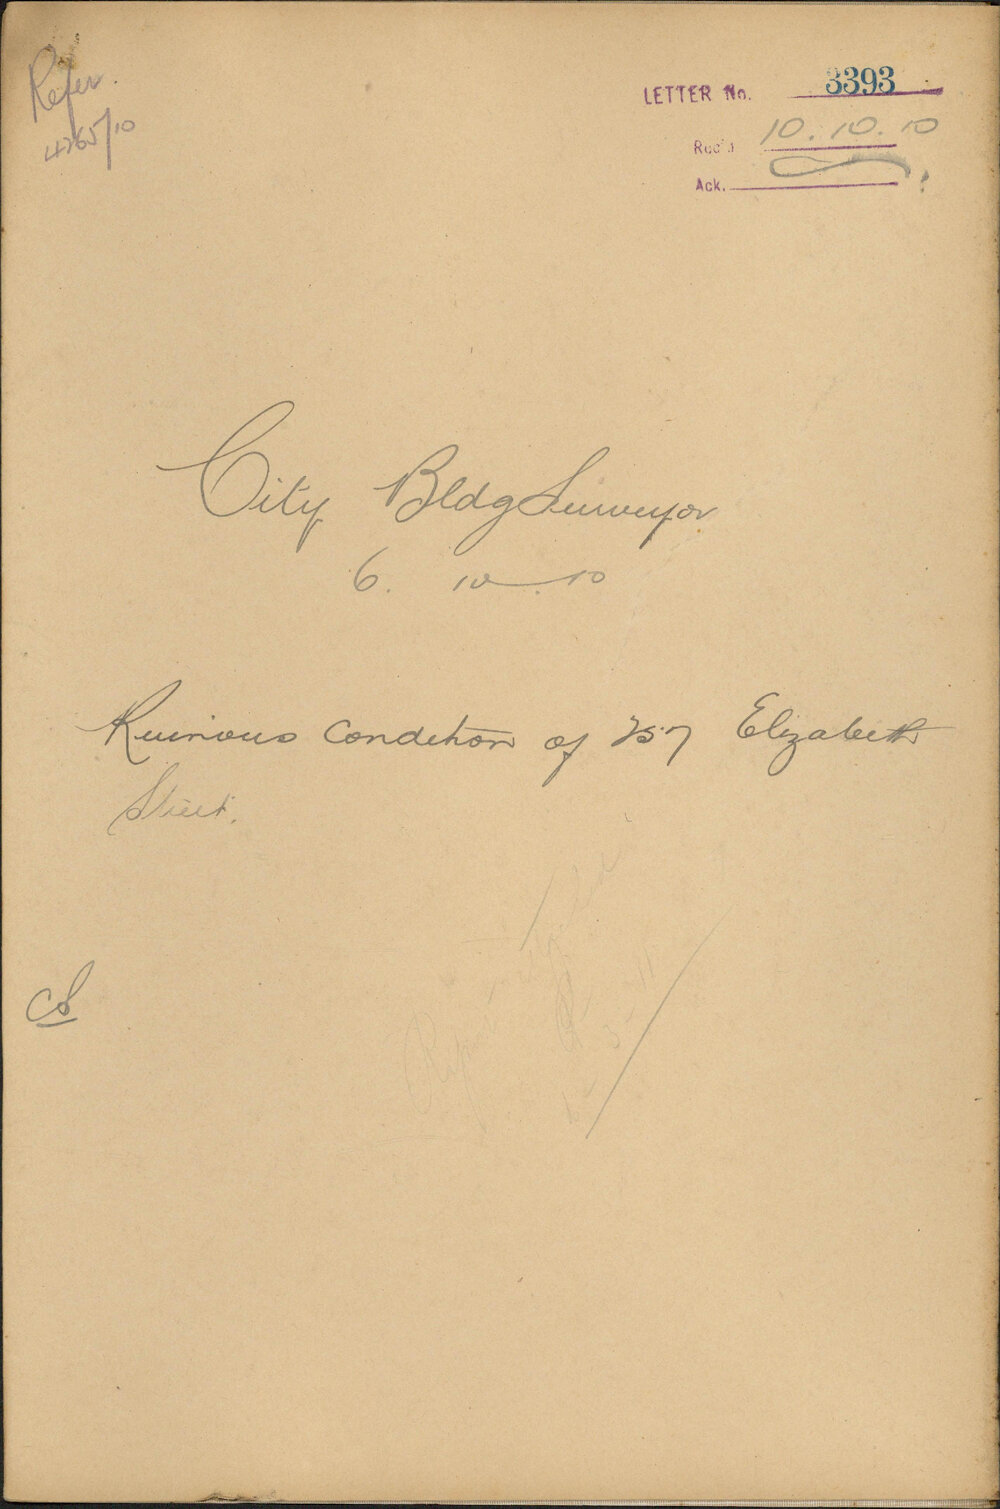 Refer
4265/10
LETTER No. 3393
Rec'd 10.10.10
Ack.
City Bldg Surveyor
6. 10. 10
Ruinous Condition of 257 Elizabeth
Street.
CS